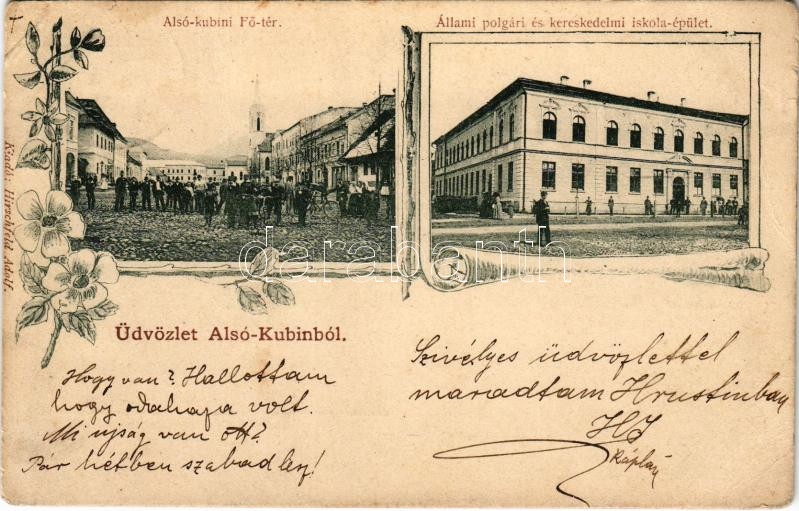 Alsó-kubini Fő-tér.
Állami polgári és kereskedelmi iskola-épület.
Kiadó: Hirschfeld Adolf.
darabanth.com
Üdvözlet Alsó-Kubinból.
Hogy van? Hallottam
hogy odahaza volt.
Mi ujság van ott?
Pár hétben szabad
Szivélyes üdvözlettel
maradtam Hrustinban
HJ
káplán